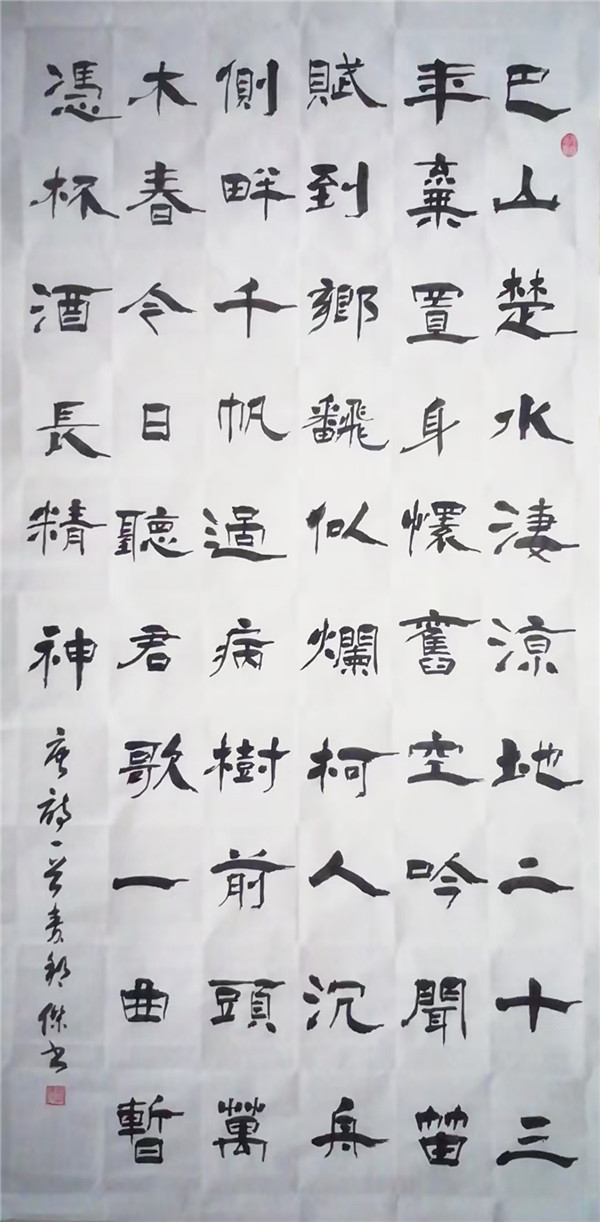 巴山楚水淒涼地二十三
年棄置身懷舊空吟聞笛
賦到鄉飜似爛柯人沉舟
側畔千帆過病樹前頭萬
木春今日聽君歌一曲暫
憑杯酒長精神
唐詩一首 傑书